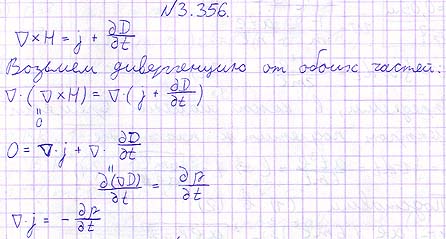 №3.356.
∇×H = j + ∂D/∂t
Возьмем дивергенцию от обоих частей:
∇·(∇×H) = ∇·(j + ∂D/∂t)
"
0
0 = ∇·j + ∇·∂D/∂t
"
∂(∇D)/∂t = ∂ρ/∂t
∇·j = -∂ρ/∂t